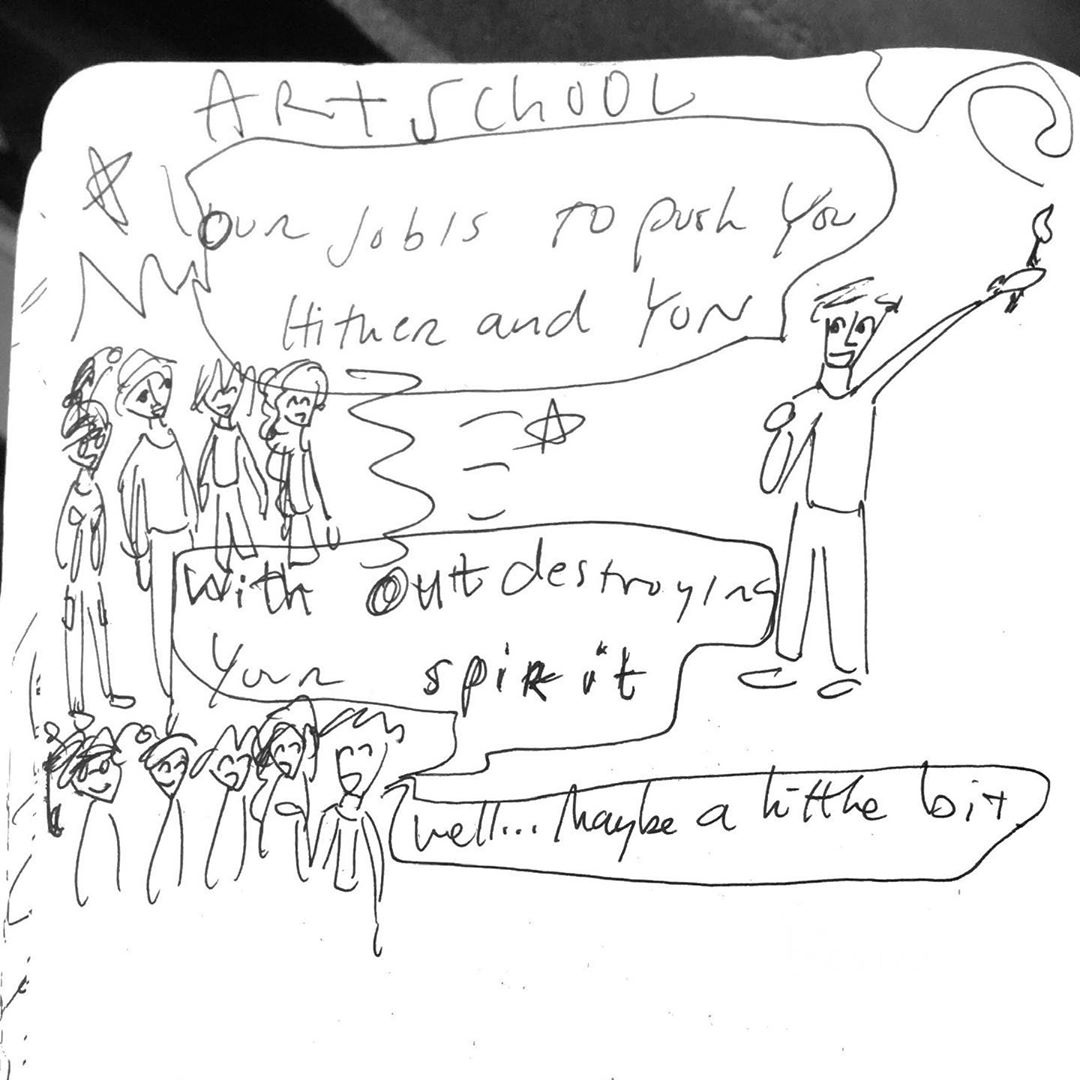 ART SCHOOL
Our Job Is To push You
Hither and YON
with Out destroying
Your spirit
well... Maybe a little bit